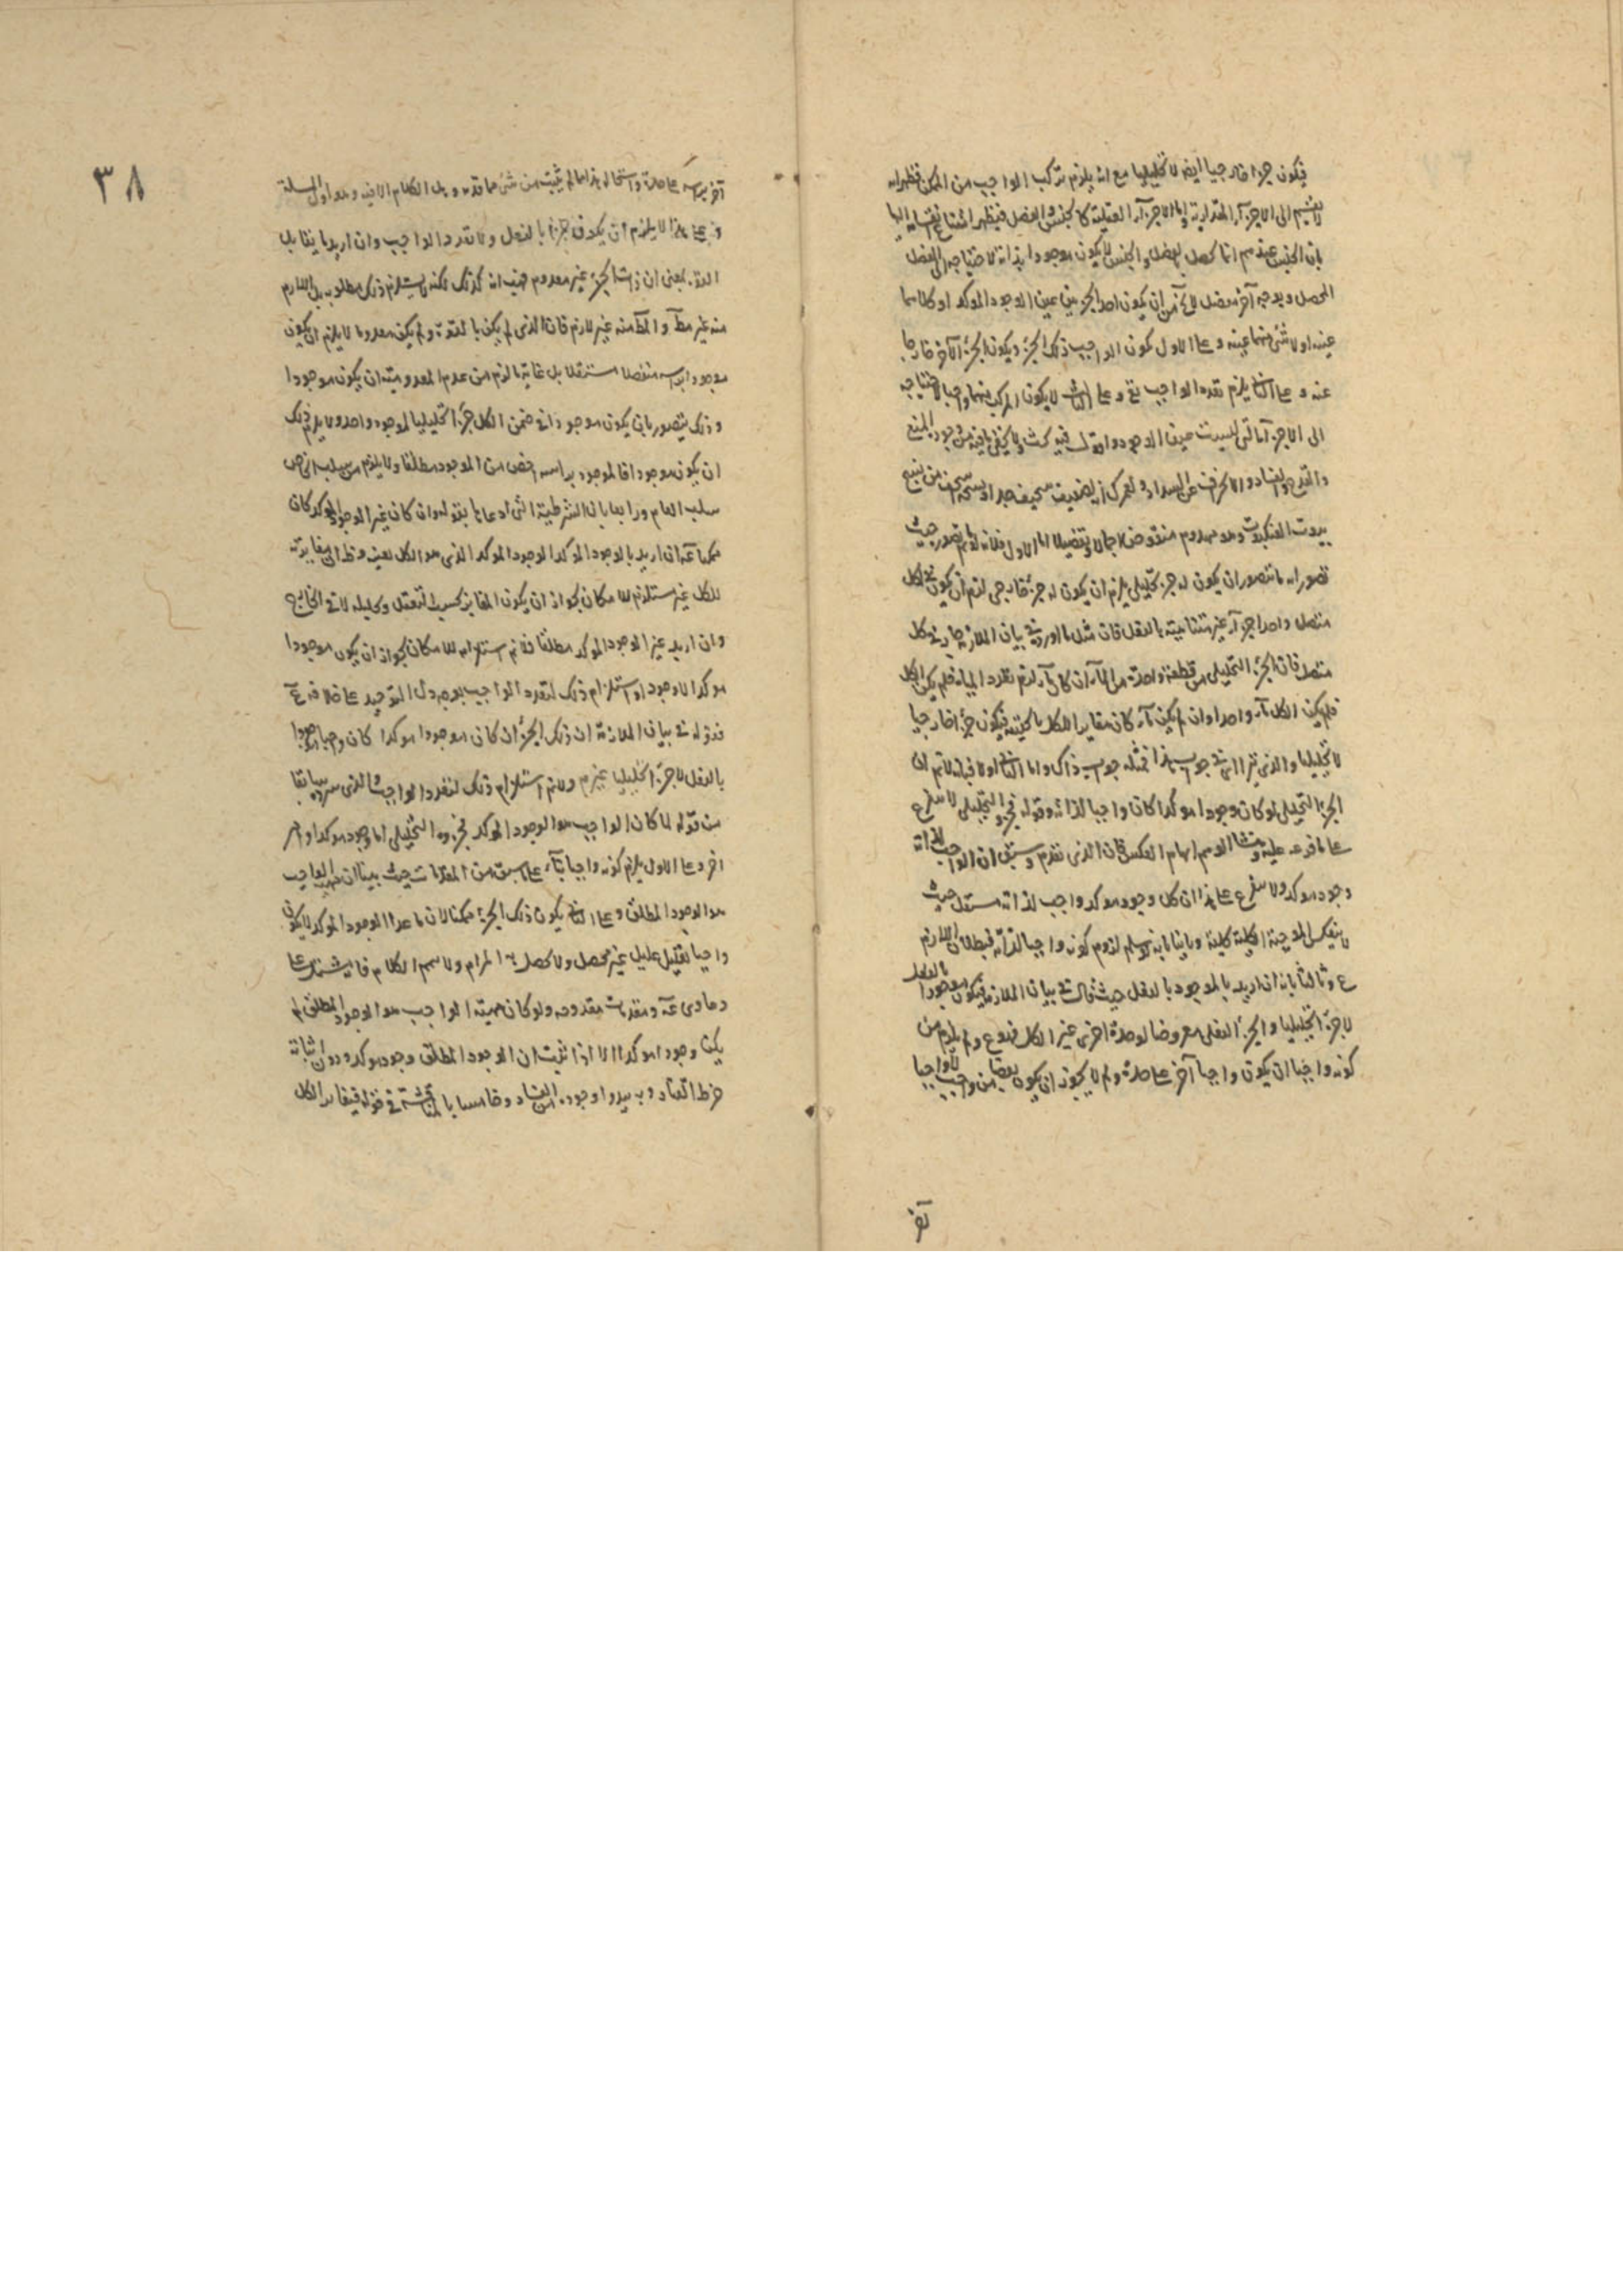 فيكون جزءا خارجيا ايضا لا تحليليا مع انه يلزم تركب الواجب من الممكن فظهر انه
لا ينقسم الى الاجزاء المقدارية واما الاجزاء العقلية كالجنس والفصل فيظهر امتناع انقسامه اليها
بان الجنس عندهم انما يحصل بالفصل والجنس لا يكون موجودا بذاته لاحتياجه الى الفصل
المحصل وبوجه آخر مفصل لا يخ من ان يكون احد الجزءين عين الوجود الموكد او كلاهما
عينه او لا شئ منهما عينه وعلى الاول يكون الواجب ذلك الجزء ويكون الجزء الآخر خارجا
عنه وعلى الثانى يلزم تعدد الواجب تع وعلى الثالث لا يكون المركب منهما واجبا لاحتياجه
الى الاجزاء التى ليست عين الوجود اقول فيه بحث ولا يخفى ما فيه من وجوه المنع
والقدح والفساد والانحراف عن السداد ولعمرك انه ضعيف سخيف جدا
بيوت العنكبوت وهو مهدوم منقوض اجمالا وتفصيلا اما الاول فلانه لو تم
تصور انه ما يتصور ان يكون له جزء تحليلى يلزم ان يكون له جزء خارجى لزم ان يكون فى كل
متصل واحد اجزاء غير متناهية بالفعل فان مثل ما اورد فى بيان الملازمة جار فى كل
متصل فان الجزء التحليلى من قطعة واحدة من الماء ان كان ماء لزم تعدد المياه فلم يكن الكل
فلم يكن الكل ماء واحدا وان لم يكن ماء كان مغايرا للكل بالحقيقة فيكون جزءا خارجيا
لا تحليليا والذى جواب هذا فمثله جواب ذاك واما الثانى اولا فبانه لا تم ان
الجزء التحليلى لو كان وجودا موكدا كان واجبا لذاته وقوله فجزؤه التحليلى لا يتفرع
على ما فرعه عليه ومنشأ الوهم ايهام العكس فان الذى تقدم وسبق ان الواجب لذاته
وجود موكد ولا يتفرع على هذا ان كل وجود موكد واجب لذاته مستقل حيث
لا ينعكس الموجبة الكلية كلية وثانيا بانه لو سلم لزوم كونه واجبا لذاته فبطلان اللازم
ع وثالثا بانه ان اريد بالموجود بالفعل حيث قال فى بيان الملازمة فيكون موجودا بالفعل
لا جزءا تحليليا والجزء الفعلى معروضا لوحدة اخرى غير الكل فمنوع ولم يلزم من
كونه واجبا ان يكون واجبا آخر على حدة ولم لا يجوز ان يكون بعضا من واجب لا واجبا
آخر
٣٨
آخر برأسه على حدة واستحالة هذا مما لم يثبت من شئ مما قدمه وهل الكلام الا فيه وهو اول المسئلة
وعلى هذا لا يلزم ان يكون جزءا بالفعل ولا تعدد الواجب وان اريد ما يقابل
القوة بمعنى ان ذات الجزء غير معدوم فهب انه كذلك لكنه لا يستلزم ذلك مطلوبه بل اللازم
منه غير مط والمط منه غير لازم فان الذى لم يكن بالقوة ولم يكن معدوما لا يلزم ان يكون
موجودا برأسه منفصلا مستقلا بل غاية ما لزم من عدم المعدومية ان يكون موجودا
وذلك يتصور بان يكون موجودا فى ضمن الكل جزءا تحليليا لموجود واحد ولا يلزم ذلك
ان يكون موجودا فالموجود برأسه اخص من الموجود مطلقا ولا يلزم من سلب الاخص
سلب العام ورابعا بان الشرطية التى ادعاها بقوله وان كان غير الوجود الموكد كان
ممكنا عه ان اريد بالوجود الموكد الوجود الموكد الذى هو الكل بعينه وظ ان مغايرته
للكل غير مستلزم للامكان لجواز ان يكون التغاير بحسب التعقل وتحليله لا فى الخارج
وان اريد غير الوجود الموكد مطلقا فلا نم استلزامه للامكان لجواز ان يكون موجودا
موكدا لا وجودا واستلزام ذلك لتعدد الواجب بوجه دل التوحيد على خلافه ع
فقوله فى بيان الملازمة ان ذلك الجزء ان كان موجودا موكدا كان واجبا موجودا
بالفعل لا جزءا تحليليا غير م ولا نم استلزام ذلك لتعدد الواجب والذى سرده سابقا
من قوله لما كان الواجب هو الوجود الموكد فجزؤه التحليلى اما وجود موكد او امر
آخر وعلى الاول يلزم كونه واجبا بناء على ما سبق من المقدمات حيث بينا ان مهية الواجب
هو الوجود المطلق وعلى الثانى يكون ذلك الجزء ممكنا لان ما عدا الوجود الموكد لا يكون
واجبا تعليل عليل غير محصل ولا يحصل به المرام ولا يحسم الكلام فانه يشتمل على
دعاوى عه ومقدمات مقدوحة ولو كان مهية الواجب هو الوجود المطلق لم
يكن وجودا موكدا الا اذا ثبت ان الوجود المطلق وجود موكد ودون اثباته
خرط القتاد وبه يبدو وجوه من الفساد وخامسا بالمناقشة فى قوله فيغاير الكل